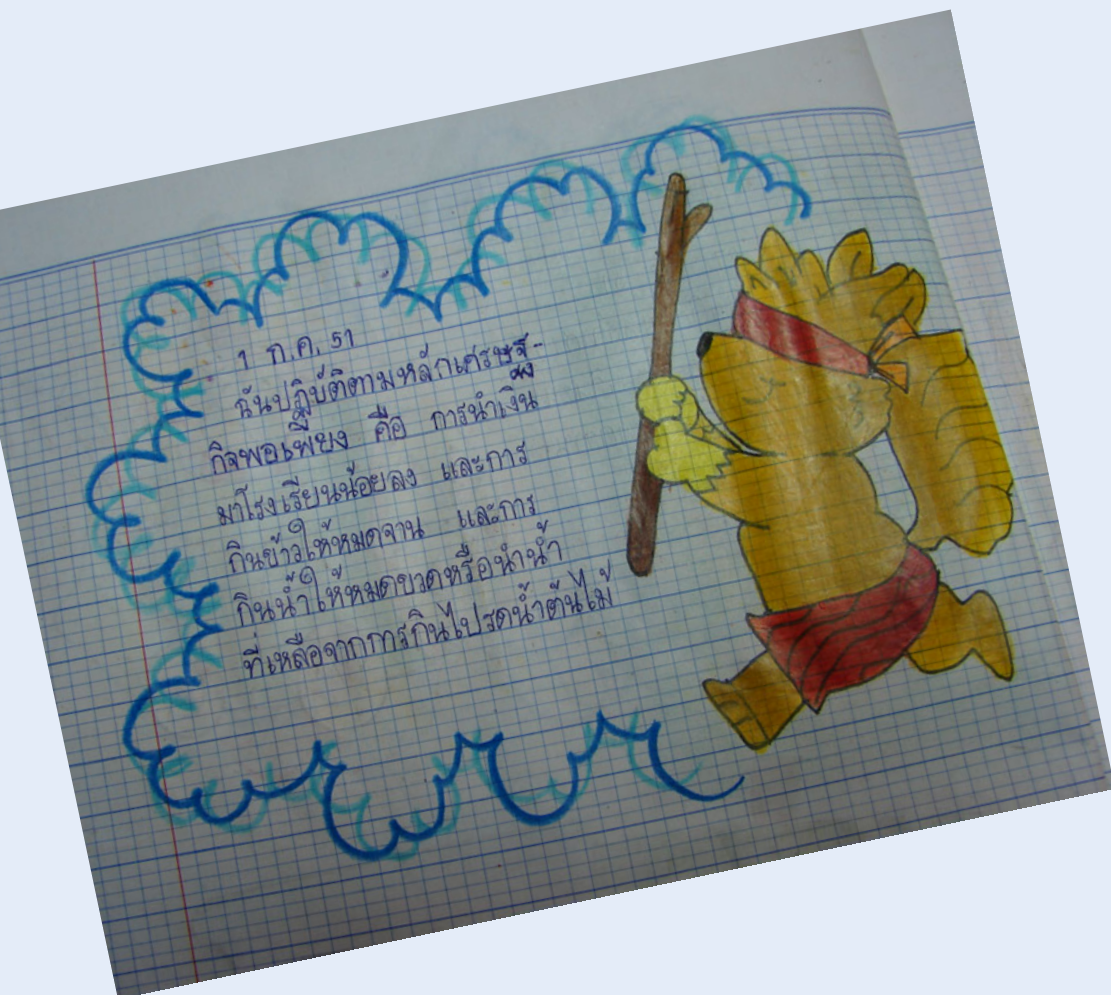 1 ก.ค. 51
ฉันปฏิบัติตามหลักเศรษฐ-
กิจพอเพียง คือ การนำเงิน
มาโรงเรียนน้อยลง และการ
กินข้าวให้หมดจาน และการ
กินน้ำให้หมดขวดหรือนำน้ำ
ที่เหลือจากการกินไปรดน้ำต้นไม้